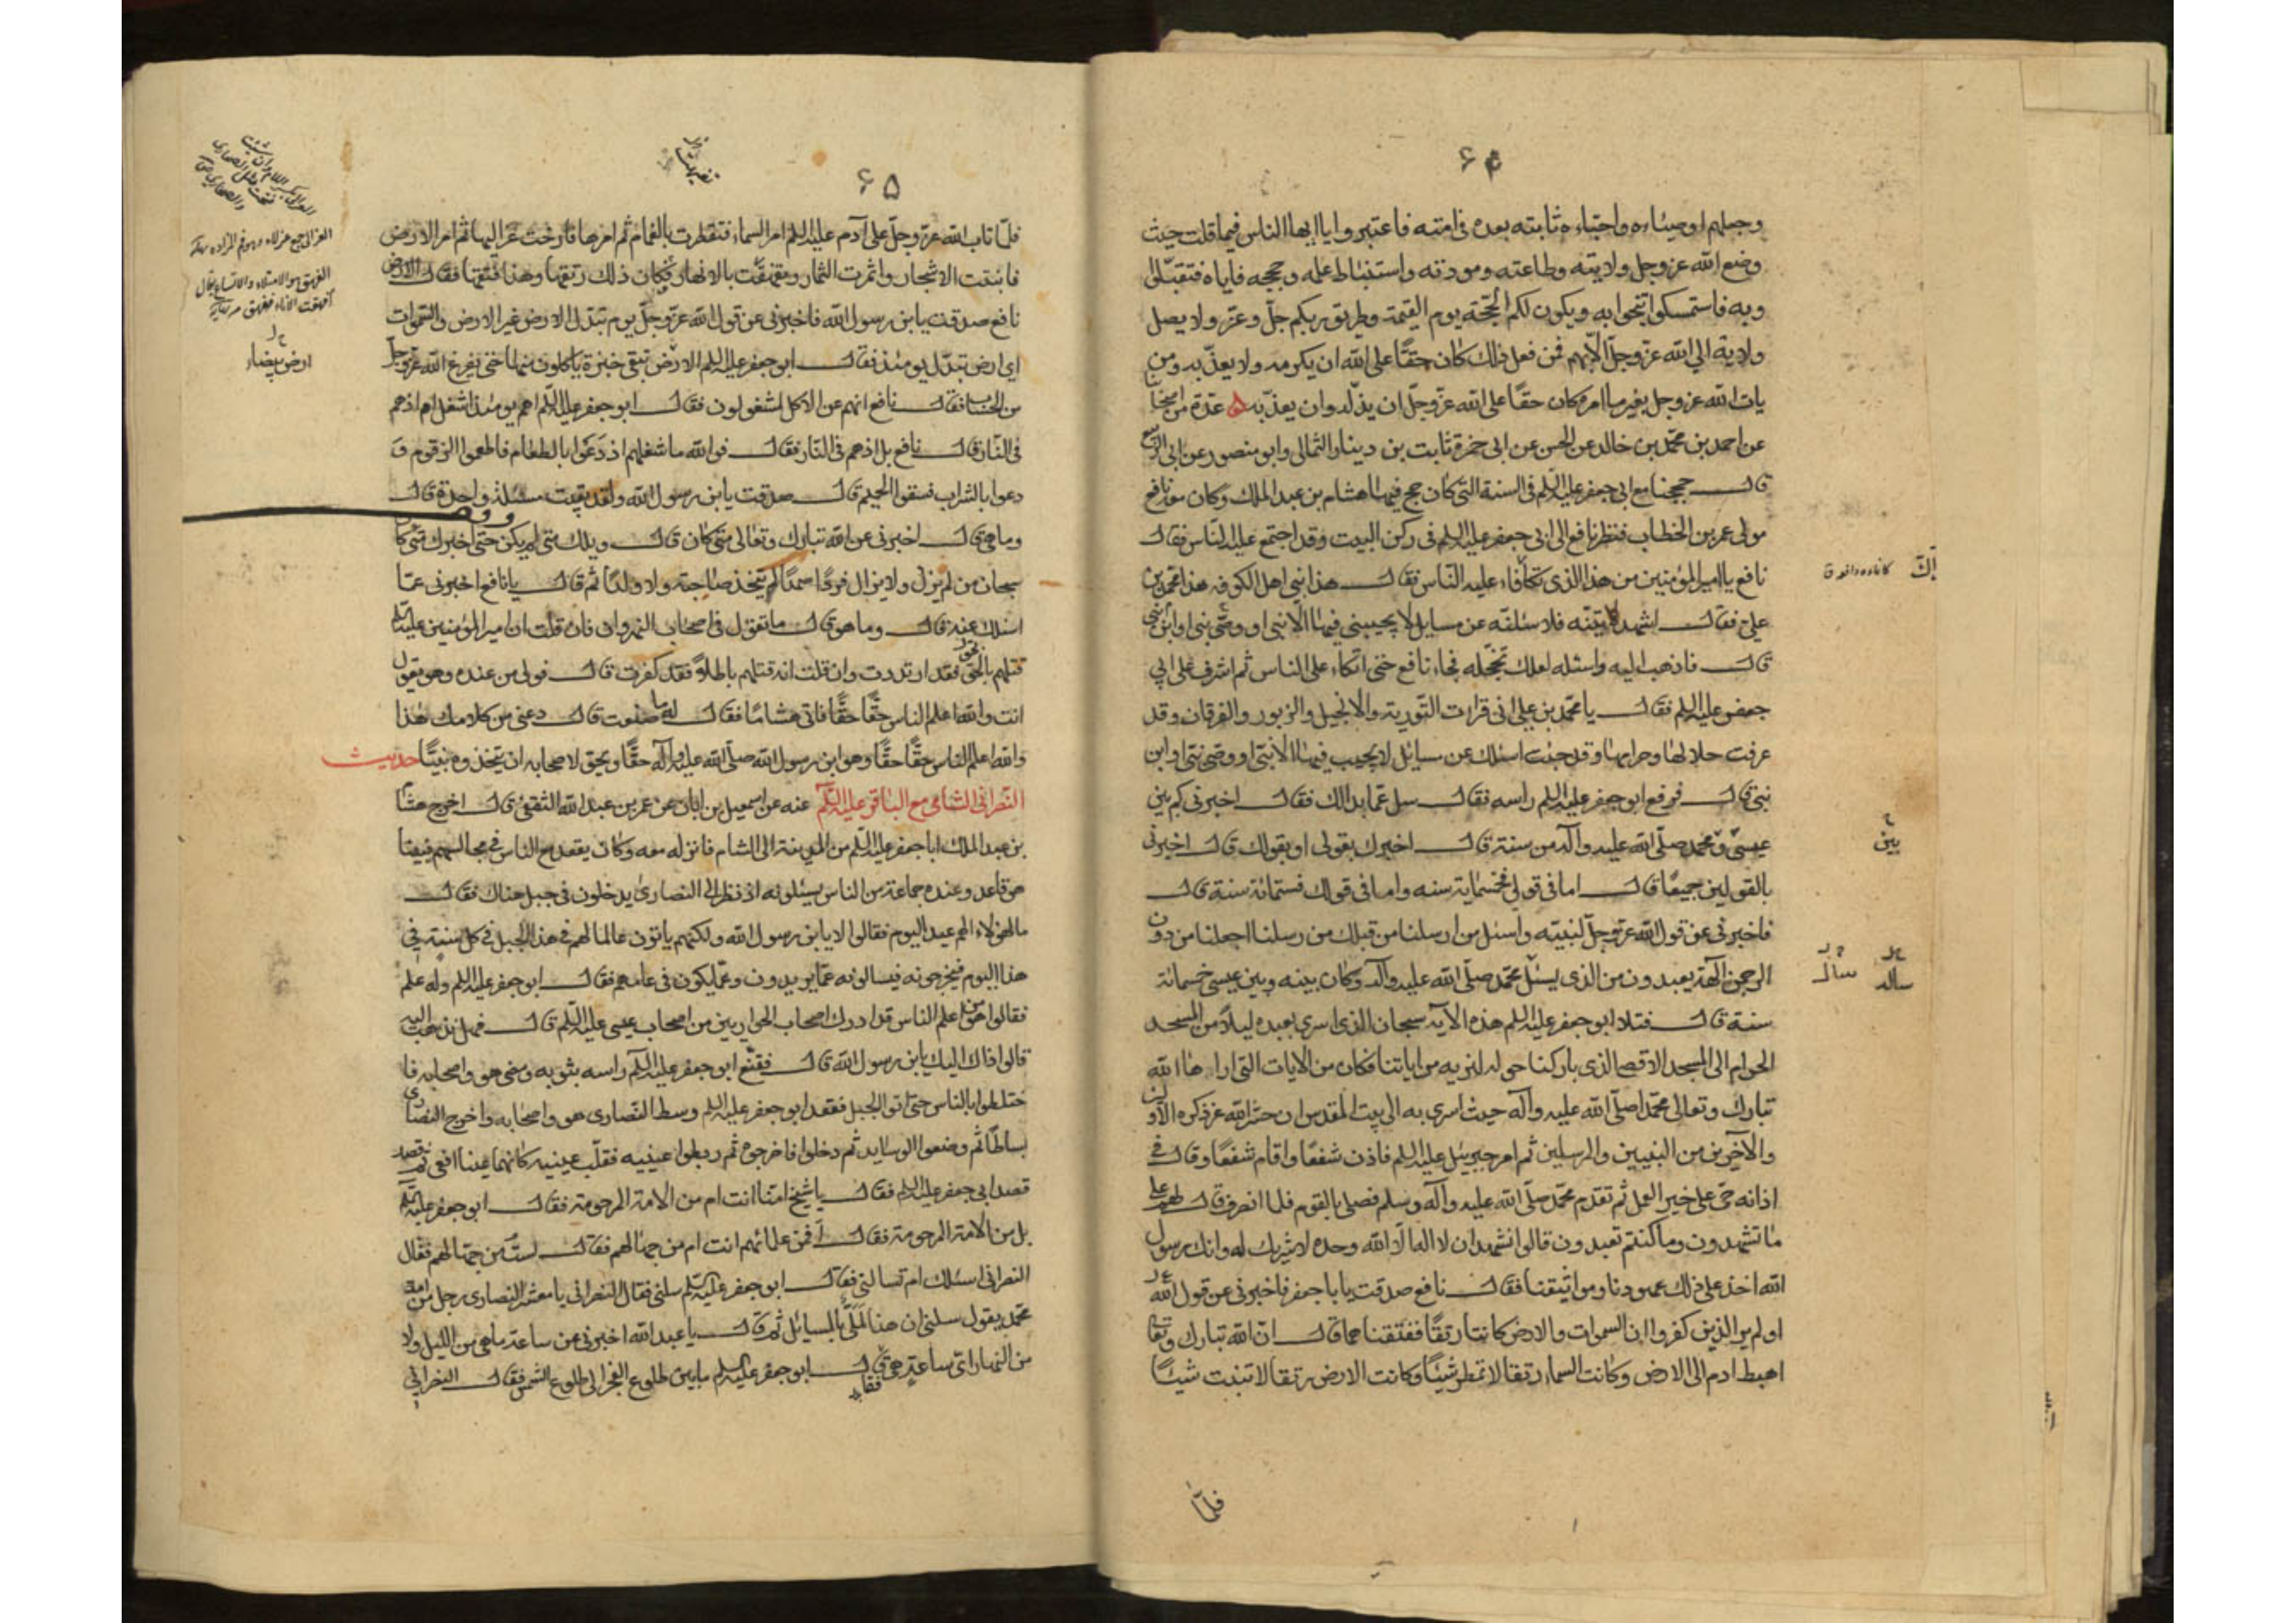 ۶۴
وجعلهم اوصياءه واحباءه ثابتة بعده فى امته فاعتبروا ياايها الناس فيما قلت حيث
وضع الله عز وجل ولايته وطاعته ومودته واستنباط علمه وحججه فاياه فتقبلوا
وبه فاستمسكوا تنجوا به ويكون لكم الحجة يوم القيمة وطريق ربكم جل وعز ولا يصل
ولاية الى الله عز وجل الا بهم فمن فعل ذلك كان حقا على الله ان يكرمه ولا يعذبه ومن
يات الله عز وجل بغير ما امره كان حقا على الله عز وجل ان يذله وان يعذبه عدة من اصحابنا
عن احمد بن محمد بن خالد عن الحسن عن ابى حمزة ثابت بن دينار الثمالى وابو منصور عن ابى الربيع
قال حججنا مع ابى جعفر عليه السلم فى السنة التى كان حج فيها هشام بن عبد الملك وكان معه نافع
مولى عمر بن الخطاب فنظر نافع الى ابى جعفر عليه السلم فى ركن البيت وقد اجتمع عليه الناس فقال
نافع يا امير المؤمنين من هذا الذى تكافاء عليه الناس فقال هذا نبى اهل الكوفه هذا محمد بن
على فقال اشهد لاتينه فلاسئلنه عن مسايل لا يجيبنى فيها الا نبى او وصى نبى او ابن نبى
قال فاذهب اليه واسئله لعلك تخجله فجاء نافع حتى اتكاء على الناس ثم اشرف على ابى
جعفر عليه السلم فقال يا محمد بن على انى قرات التورية والانجيل والزبور والفرقان وقد
عرفت حلالها وحرامها وقد جئت اسئلك عن مسايل لا يجيب فيها الا نبى او وصى نبى او ابن
نبى قال فرفع ابو جعفر عليه السلم راسه فقال سل عما بدا لك فقال اخبرنى كم بين
عيسى و محمد صلى الله عليه وآله من سنة قال اخبرك بقولى او بقولك قال اخبرنى
بالقولين جميعا قال اما فى قولى فخسمائة سنه واما فى قولك فستمائة سنة قال
فاخبرنى عن قول الله عز وجل لنبيه واسئل من ارسلنا من قبلك من رسلنا اجعلنا من دون
الرحمن الهة يعبدون من الذى يسئل محمد صلى الله عليه وآله وكان بينه وبين عيسى خمسمائة
سنة قال فتلا ابو جعفر عليه السلم هذه الآية سبحان الذى اسرى بعبده ليلا من المسجد
الحرام الى المسجد الاقصا الذى باركنا حوله لنريه من اياتنا فكان من الايات التى اراها الله
تبارك وتعالى محمدا صلى الله عليه وآله حيث اسرى به الى بيت المقدس ان حشر الله عز ذكره الاولين
والآخرين من النبيين والمرسلين ثم امر جبرئيل عليه السلم فاذن شفعا واقام شفعا وقال فى
اذانه حى على خير العمل ثم تقدم محمد صلى الله عليه وآله وسلم فصلى بالقوم فلما انصرف قال لهم على
ما تشهدون وما كنتم تعبدون قالوا نشهد ان لا اله الا الله وحده لا شريك له وانك رسول
الله اخذ على ذلك عهودنا ومواثيقنا فقال نافع صدقت يا باجعفر فاخبرنى عن قول الله
اولم ير الذين كفروا ان السموات والارض كانتا رتقا ففتقناهما قال ان الله تبارك وتعا
اهبط ادم الى الارض وكانت السماء رتقا لا تمطر شيئا وكانت الارض رتقا لا تنبت شيئا
فلما
بين
۶۵
فلما تاب الله عز وجل على آدم عليه السلم امر السماء فتقطرت بالغمام ثم امرها فارخت عزاليها ثم امر الارض
فانبتت الاشجار واثمرت الثمار وتفهقت بالانهار فكان ذلك رتقها وهذا فتقها فقال
نافع صدقت يابن رسول الله فاخبرنى عن قول الله عز وجل يوم تبدل الارض غير الارض والسموات
اى ارض تبدل يومئذ فقال ابو جعفر عليه السلم الارض تبقى خبزة ياكلون منها حتى يفرغ الله عز وجل
من الحساب فقال نافع انهم عن الاكل لمشغولون فقال ابو جعفر عليه السلم اهم يومئذ اشغل ام اذ هم
فى النار قال نافع بل اذ هم فى النار فقال فوالله ما شغلهم اذ دعوا بالطعام فاطعموا الزقوم و
دعوا بالشراب فسقوا الحميم قال صدقت يابن رسول الله ولقد بقيت مسئلة واحدة قال
وما هى قال اخبرنى عن الله تبارك وتعالى متى كان قال ويلك متى لم يكن حتى اخبرك متى كان
سبحان من لم يزل ولا يزال فردا صمدا لم يتخذ صاحبة ولا ولدا ثم قال يا نافع اخبرنى عما
اسئلك عنه قال وما هو قال ما تقول فى اصحاب النهروان فان قلت ان امير المؤمنين عليه السلم
قتلهم بالحق فقد ارتددت وان قلت انه قتلهم باطلا فقد كفرت قال فولى من عنده وهو يقول
انت والله اعلم الناس حقا حقا فاتى هشاما فقال له ما صنعت قال دعنى من كلامك هذا
والله اعلم الناس حقا حقا وهو ابن رسول الله صلى الله عليه وآله حقا ويحق لاصحابه ان يتخذوه نبيا حديث
النصرانى الشامى مع الباقر عليه السلم عنه عن اسمعيل بن ابان عن عمر بن عبد الله الثقفى قال اخرج هشام
بن عبد الملك ابا جعفر عليه السلم من المدينة الى الشام فانزله معه وكان يقعد مع الناس فى مجالسهم فبينا
هو قاعد وعنده جماعة من الناس يسئلونه اذ نظر الى النصارى يدخلون فى جبل هناك فقال
ما لهؤلاء الهم عيد اليوم فقالوا لا يابن رسول الله ولكنهم ياتون عالما لهم فى هذا الجبل فى كل سنة فى
هذا اليوم فيخرجونه فيسالونه عما يريدون وعما يكون فى عامهم فقال ابو جعفر عليه السلم وله علم
فقالوا هو من اعلم الناس قد ادرك اصحاب الحواريين من اصحاب عيسى عليه السلم قال فهل نذهب اليه
قالوا ذاك اليك يابن رسول الله قال فقنع ابو جعفر عليه السلم راسه بثوبه ومضى هو واصحابه فا
ختلطوا بالناس حتى اتوا الجبل فقعد ابو جعفر عليه السلم وسط النصارى هو واصحابه واخرج النصارى
بساطا ثم وضعوا الوسايد ثم دخلوا فاخرجوه ثم ربطوا عينيه فقلب عينيه كانهما عينا افعى ثم
قصد ابى جعفر عليه السلم فقال يا شيخ امنا انت ام من الامة المرحومة فقال ابو جعفر عليه السلم
بل من الامة المرحومة فقال افمن علمائهم انت ام من جهالهم فقال لست من جهالهم فقال
النصرانى اسئلك ام تسالنى فقال ابو جعفر عليه السلم سلنى فقال النصرانى يا معشر النصارى رجل من امة
محمد يقول سلنى ان هذا لملى بالمسايل ثم قال يا عبد الله اخبرنى عن ساعة ما هى من الليل ولا
من النهار اى ساعة هى فقال ابو جعفر عليه السلم ما بين طلوع الفجر الى طلوع الشمس فقال النصرانى
ارض بيضاء